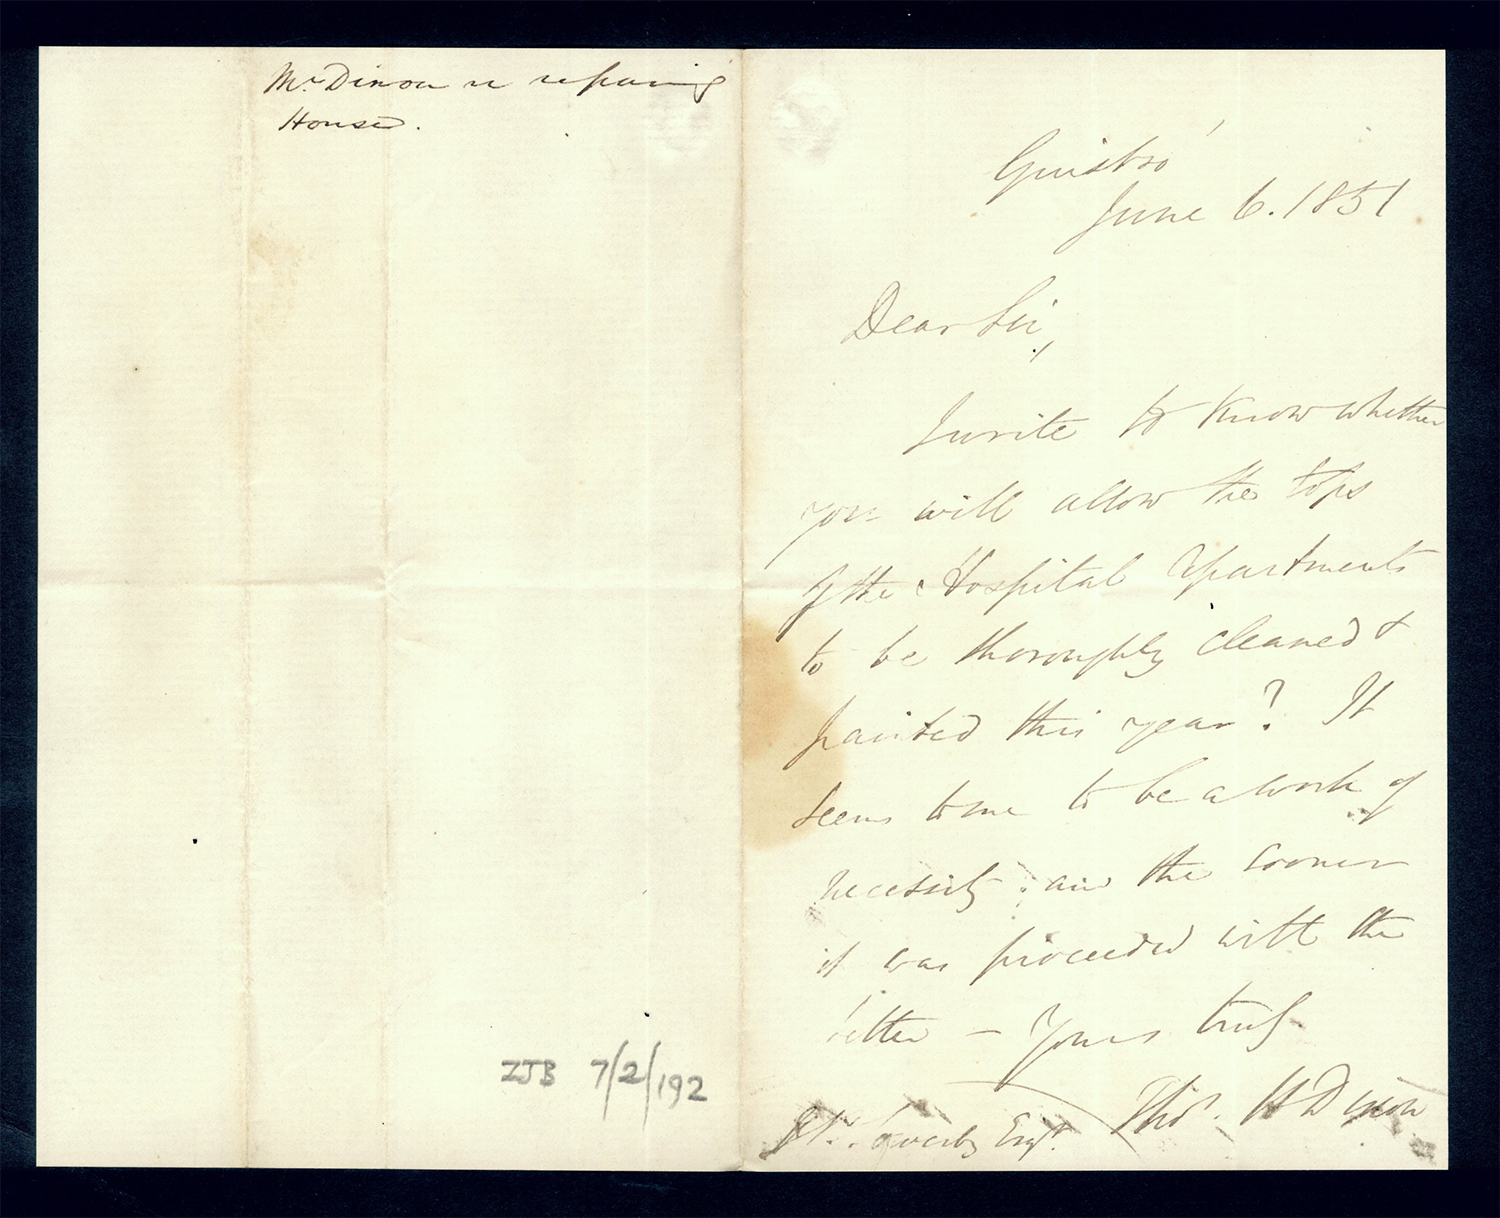 Mr. Dixon re repairing
House.
ZJB 7/2/192
Guisbro'
June 6. 1851
Dear Sir,
I write to know whether
you will allow the tops
of the Hospital Apartments
to be thoroughly cleaned &
painted this year? It
seems to me to be a work of
necessity: and the sooner
it was proceeded with the
better – Yours truly
Thos. H Dixon
Esqr.